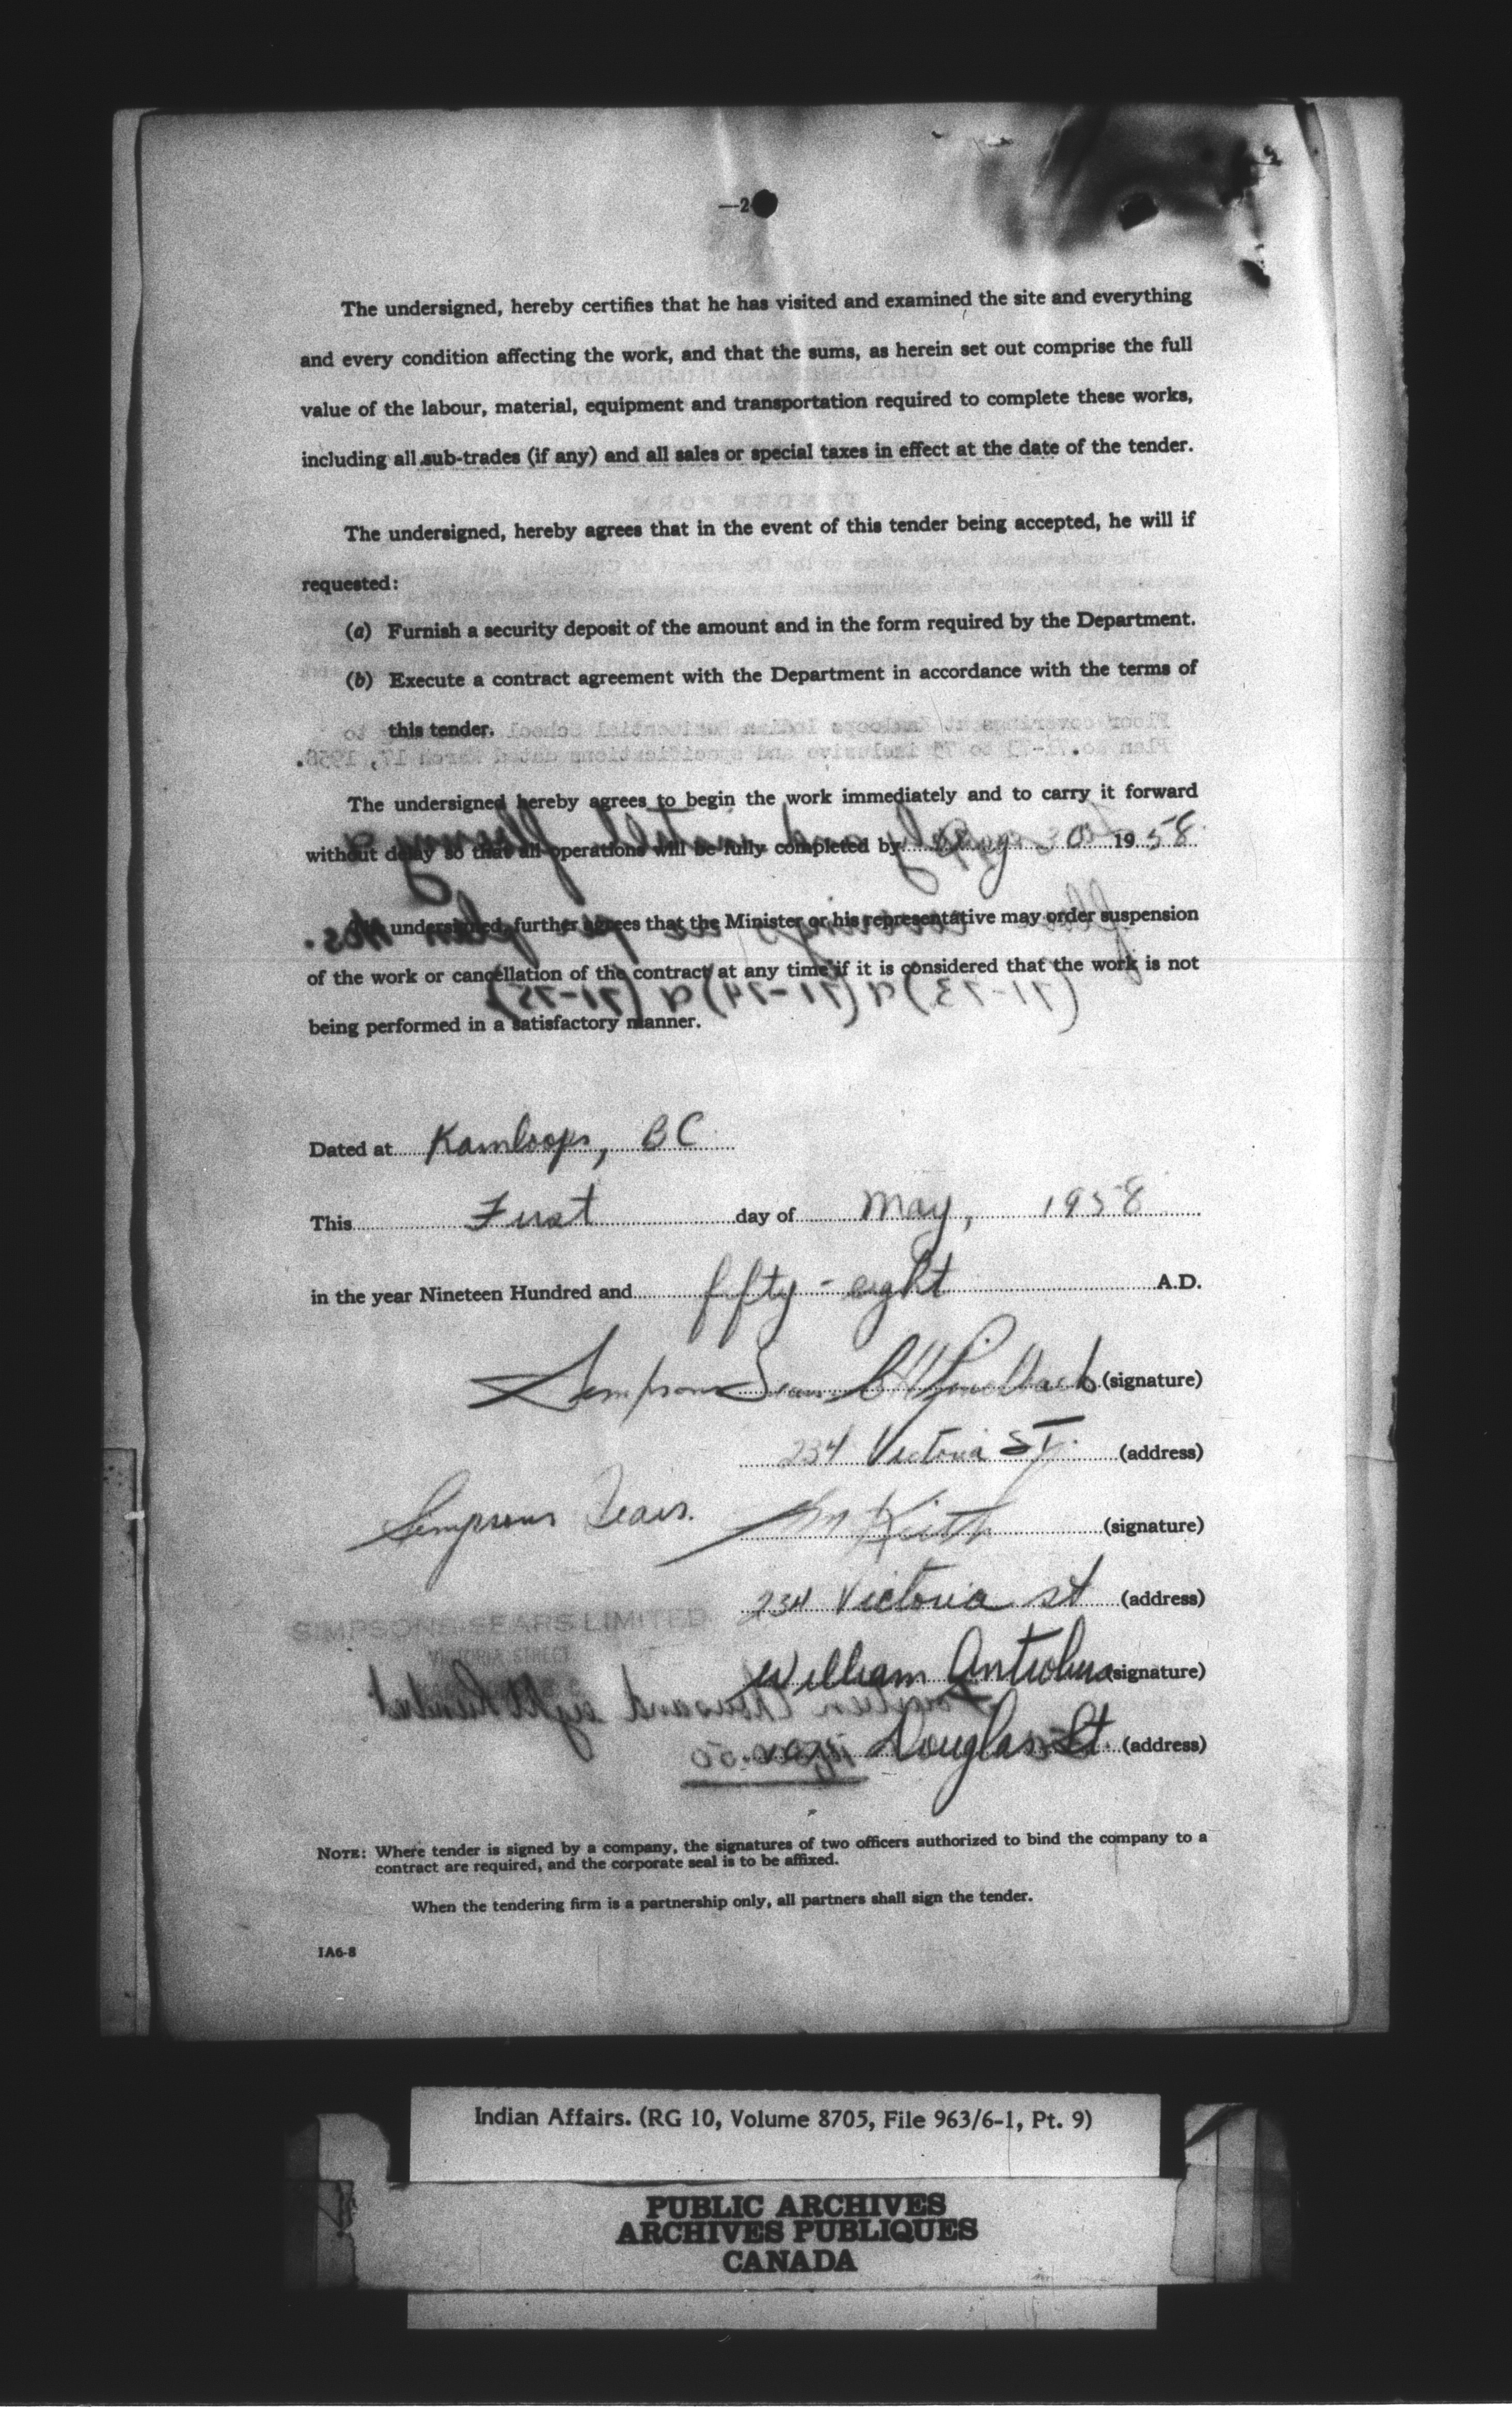 —2
The undersigned, hereby certifies that he has visited and examined the site and everything
and every condition affecting the work, and that the sums, as herein set out comprise the full
value of the labour, material, equipment and transportation required to complete these works,
including all sub-trades (if any) and all sales or special taxes in effect at the date of the tender.
The undersigned, hereby agrees that in the event of this tender being accepted, he will if
requested:
(a) Furnish a security deposit of the amount and in the form required by the Department.
(b) Execute a contract agreement with the Department in accordance with the terms of
this tender.
The undersigned hereby agrees to begin the work immediately and to carry it forward
without delay so that all operations will be fully completed by Aug 30 1958
The undersigned, further agrees that the Minister or his representative may order suspension
of the work or cancellation of the contract at any time if it is considered that the work is not
being performed in a satisfactory manner.
Dated at Kamloops, BC
This First day of May, 1958
in the year Nineteen Hundred and fifty-eight A.D.
Simpsons Sears (signature)
234 Victoria St. (address)
Simpsons Sears. Keith (signature)
234 Victoria st (address)
SIMPSONS-SEARS LIMITED
VICTORIA STREET
William Antrobus (signature)
Douglas St. (address)
NOTE: Where tender is signed by a company, the signatures of two officers authorized to bind the company to a
contract are required, and the corporate seal is to be affixed.
When the tendering firm is a partnership only, all partners shall sign the tender.
IA6-8
Indian Affairs. (RG 10, Volume 8705, File 963/6-1, Pt. 9)
PUBLIC ARCHIVES
ARCHIVES PUBLIQUES
CANADA